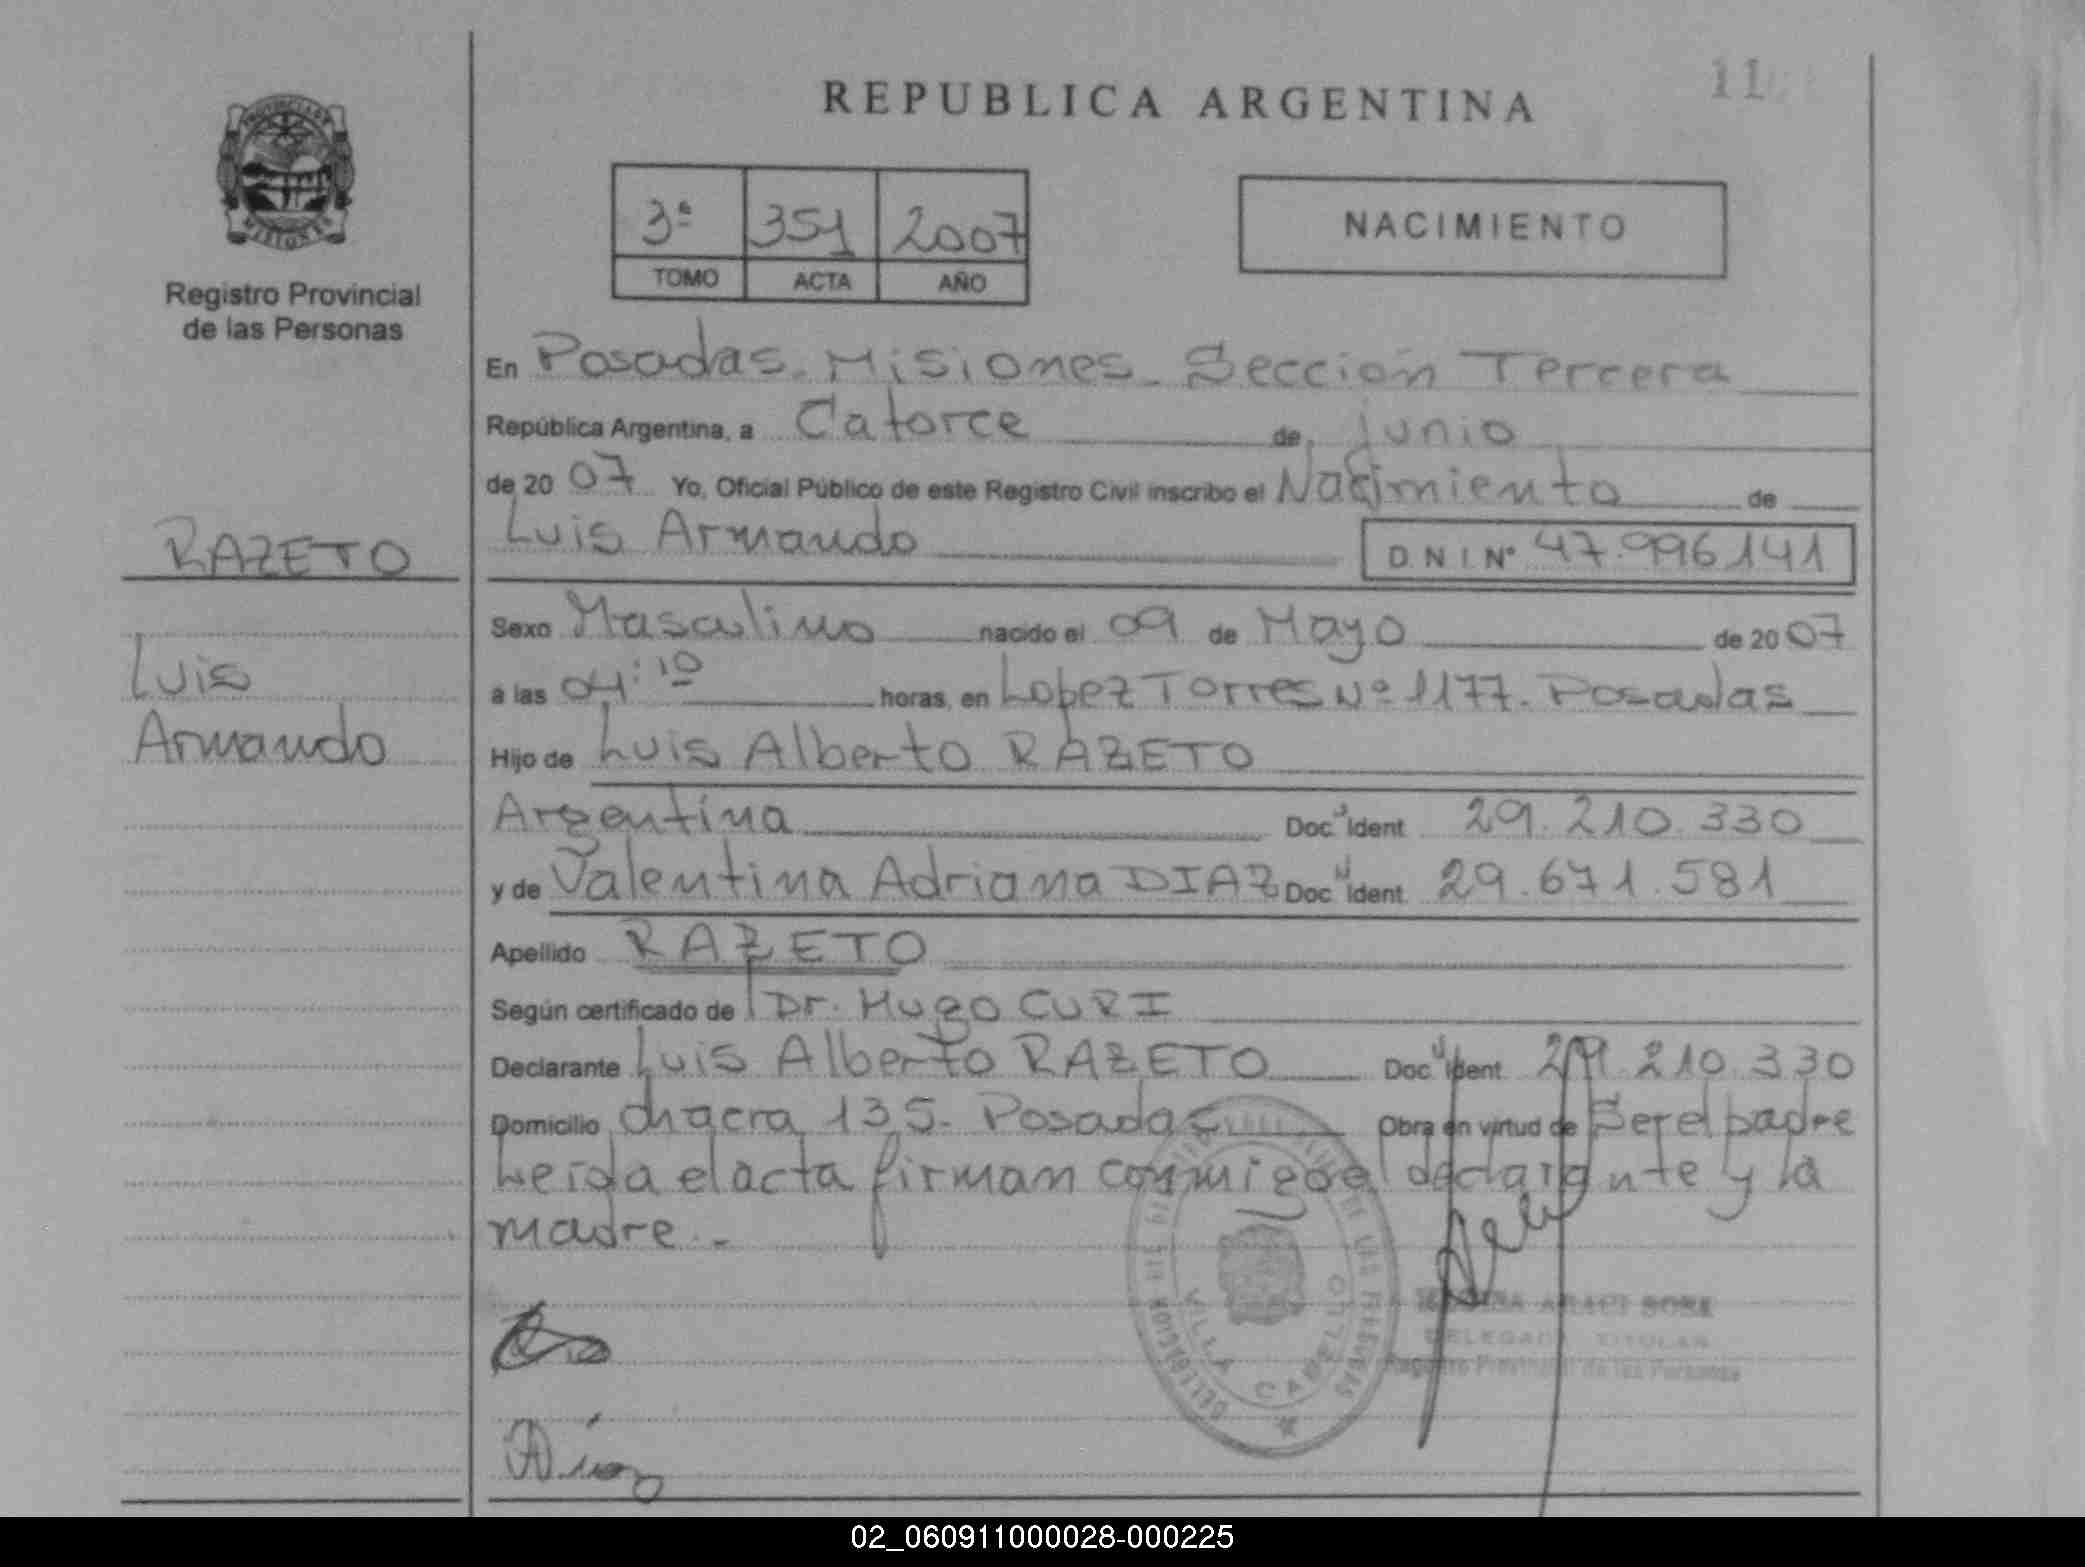 REPUBLICA ARGENTINA
11
PROVINCIA DE
MISIONES
Registro Provincial
de las Personas
3ª 351 2007
TOMO ACTA AÑO
NACIMIENTO
En Posadas. Misiones. Sección Tercera
República Argentina, a Catorce de junio
de 20 07 Yo, Oficial Público de este Registro Civil inscribo el Nacimiento de
RAZETO
Luis Armando D.N.I. Nº 47.996141
Sexo Masculino nacido el 09 de Mayo de 20 07
Luis
Armando
a las 04:10 horas, en Lopez Torres Nº 1177. Posadas
Hijo de Luis Alberto RAZETO
Argentina Doc. Ident. 29.210.330
y de Valentina Adriana DIAZ Doc. Ident. 29.671.581
Apellido RAZETO
Según certificado de Dr. Hugo CURI
Declarante Luis Alberto RAZETO Doc. Ident. 29.210.330
Domicilio chacra 135. Posadas Obra en virtud de Ser el padre
Leída el acta firman conmigo el declarante y la
madre.-
VILLA CABELLO
ARACI SOSA
DELEGADA TITULAR
Registro Provincial de las Personas
02_060911000028-000225